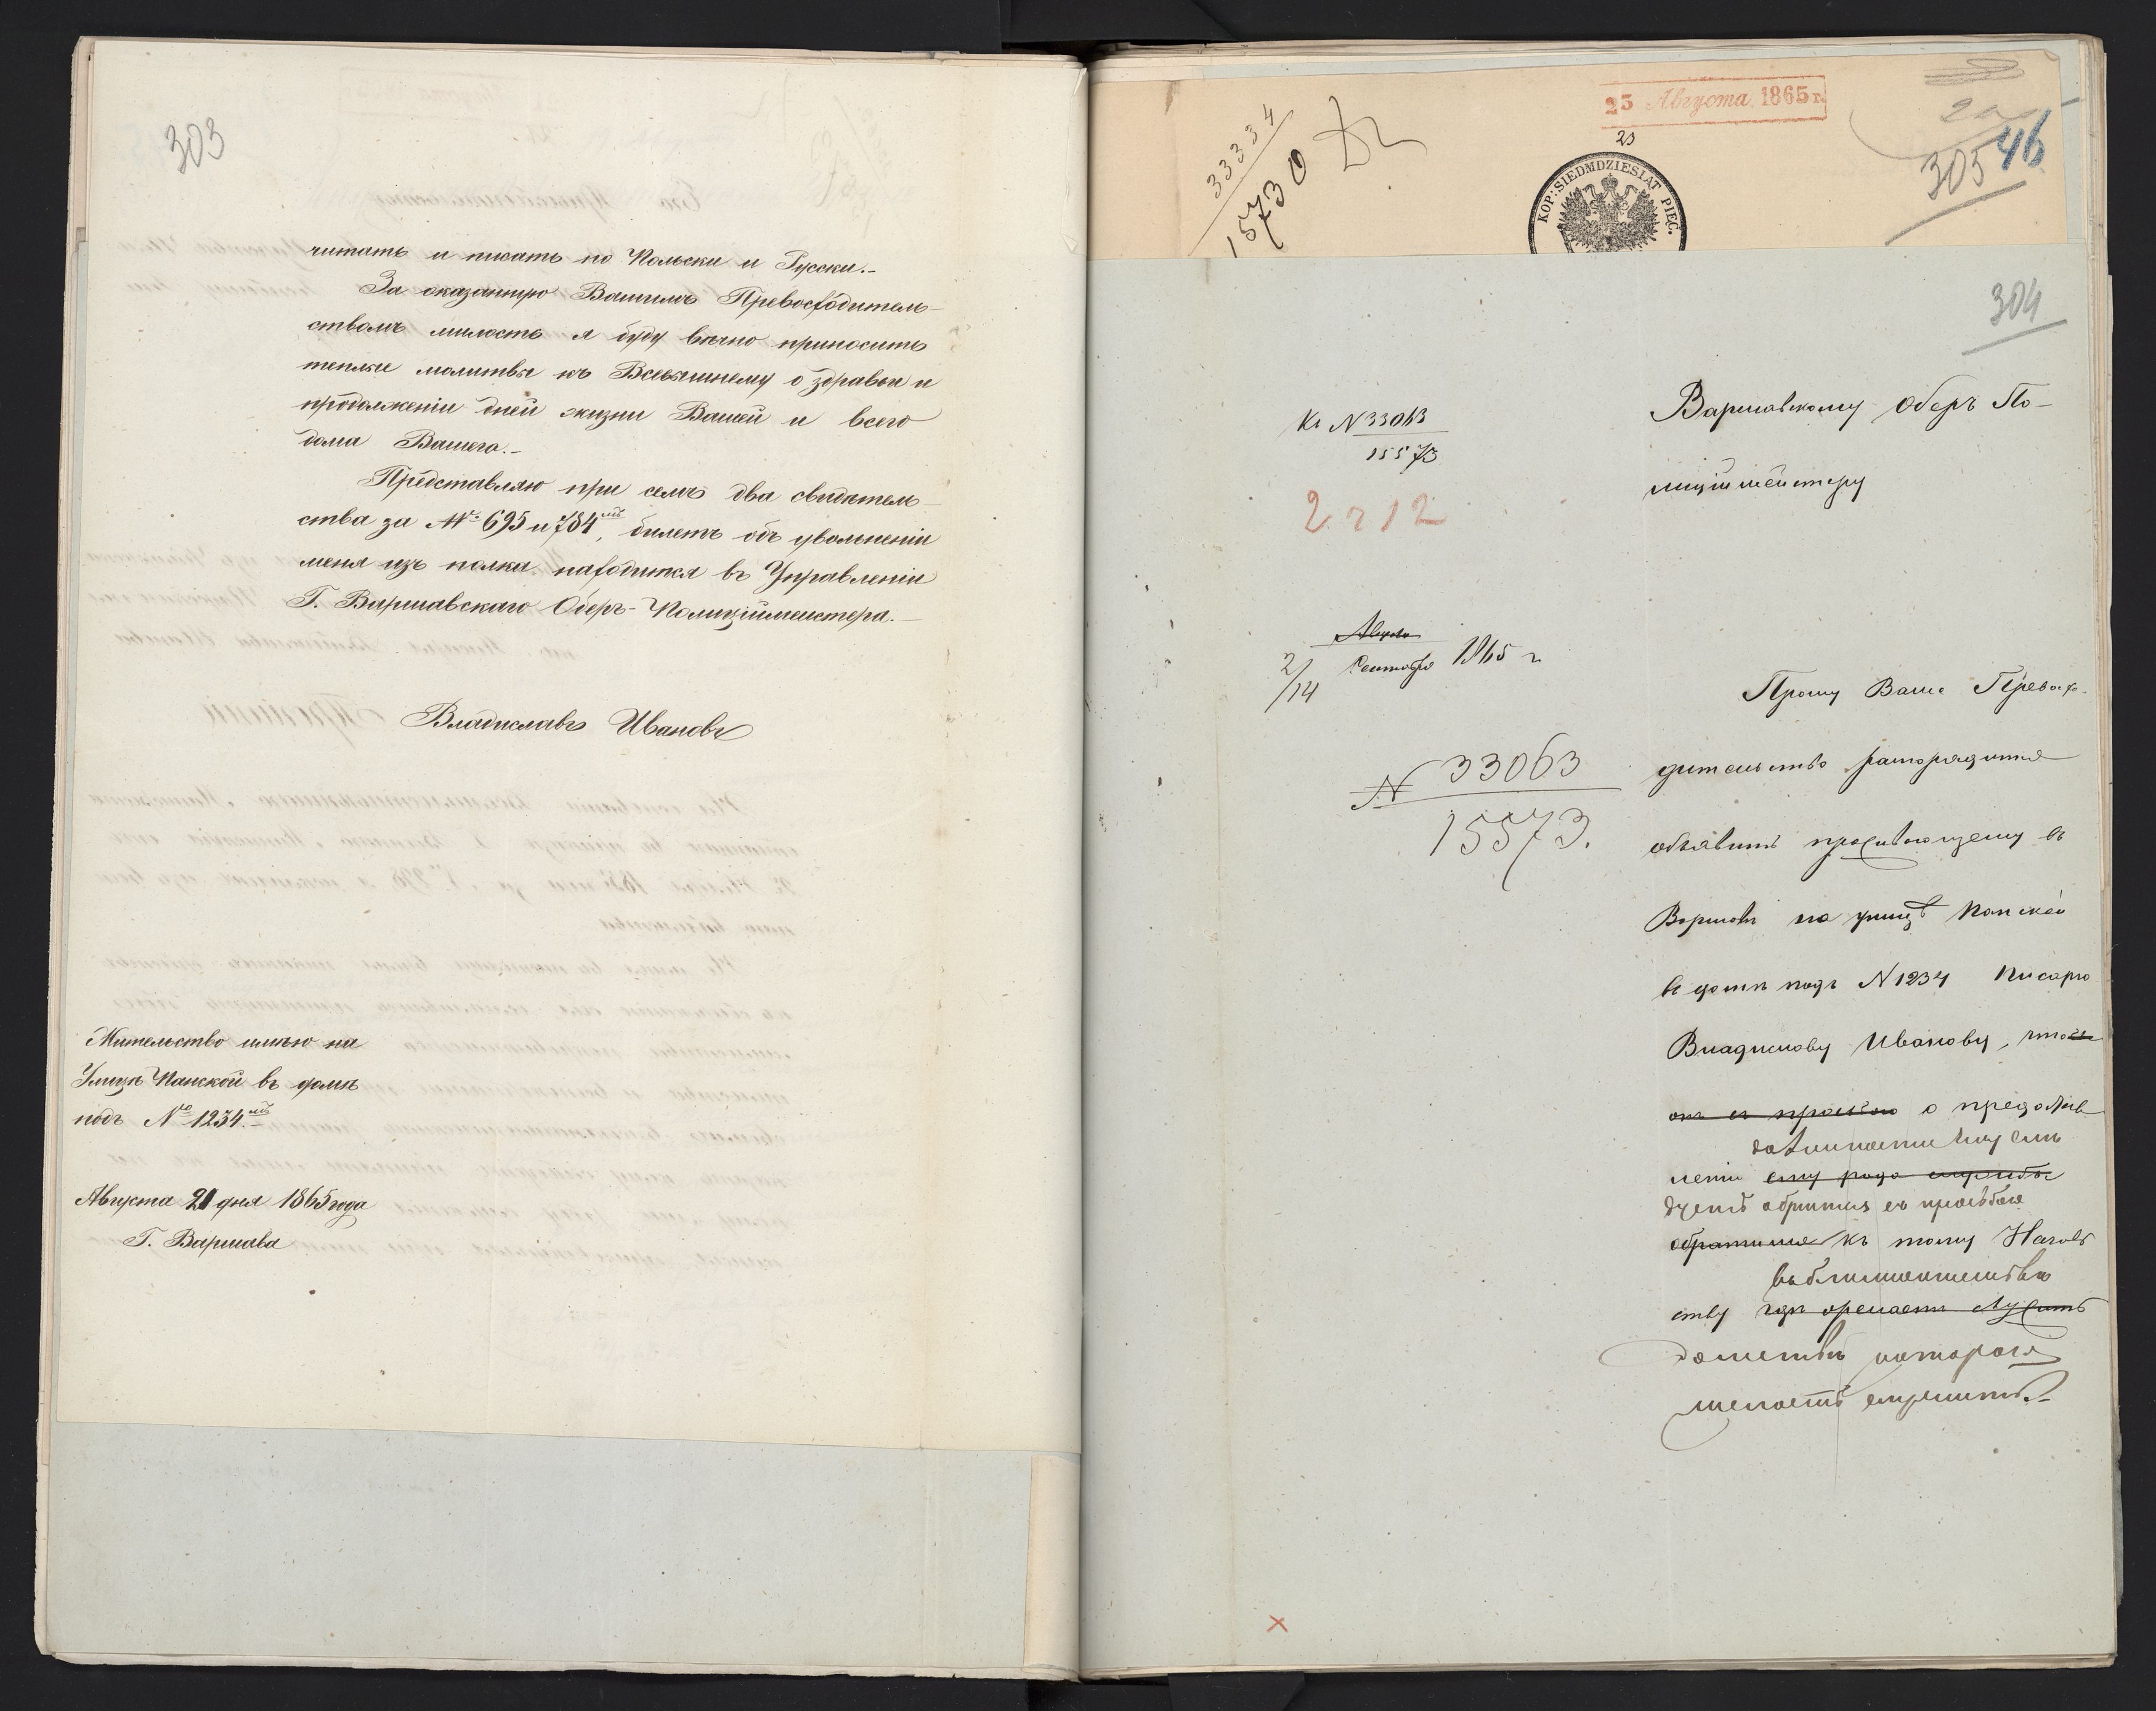 303
читать и писать по Польски и Русски.-
За оказанную Вашимъ Превосходитель-
ствомъ милость я буду вѣчно приносить
теплые молитвы къ Всевышнему о здравьи и
продолженіи дней жизни Вашей и всего
дома Вашего.-
Представляю при семъ два свидѣтель-
ства за №№ 695 и 784мъ, билетъ объ увольненіи
меня изъ полка находится въ Управленіи
Г. Варшавскаго Оберъ-Полиціймейстера.-
Владиславъ Ивановъ
Жительство имѣю на
Улицѣ Панской въ домѣ
подъ № 1234мъ
Августа 21 дня 1865 года
Г. Варшава
33334
15730
23 Августа 1865 г.
23
KOP: SIEDMDZIESIĄT PIĘĆ.
46
305
304
Къ N 33063
15573
2212
Варшавскому Оберъ По-
лиціймейстеру
Августа
2/14 Сентября 1865 г.
N 33063
15573.
Прошу Ваше Превосхо-
дительство распорядится
объявить проживающему въ
Варшавѣ на улицѣ Панской
въ домѣ подъ N 1234 Писарю
Владиславу Иванову, что
онъ съ просьбою о предостав-
леніи ему рода службы
обратится съ просьбою
обратился къ тому Началь-
ству гдѣ желаетъ служить
которого
желаетъ служить.-